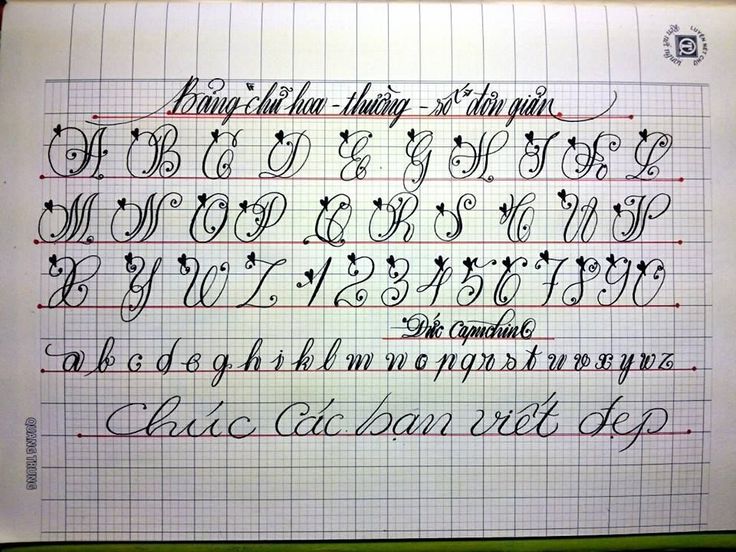 LUYỆN NÉT CHỮ
Bảng "chữ hoa - thường - số" đơn giản
A B C D E G H I K L
M N O P Q R S T U V
X Y W Z 1 2 3 4 5 6 7 8 9 0
Đức Capuchino
a b c d e g h i k l m n o p q r s t u v x y w z
Chúc Các bạn viết đẹp
QUANG TRUNG